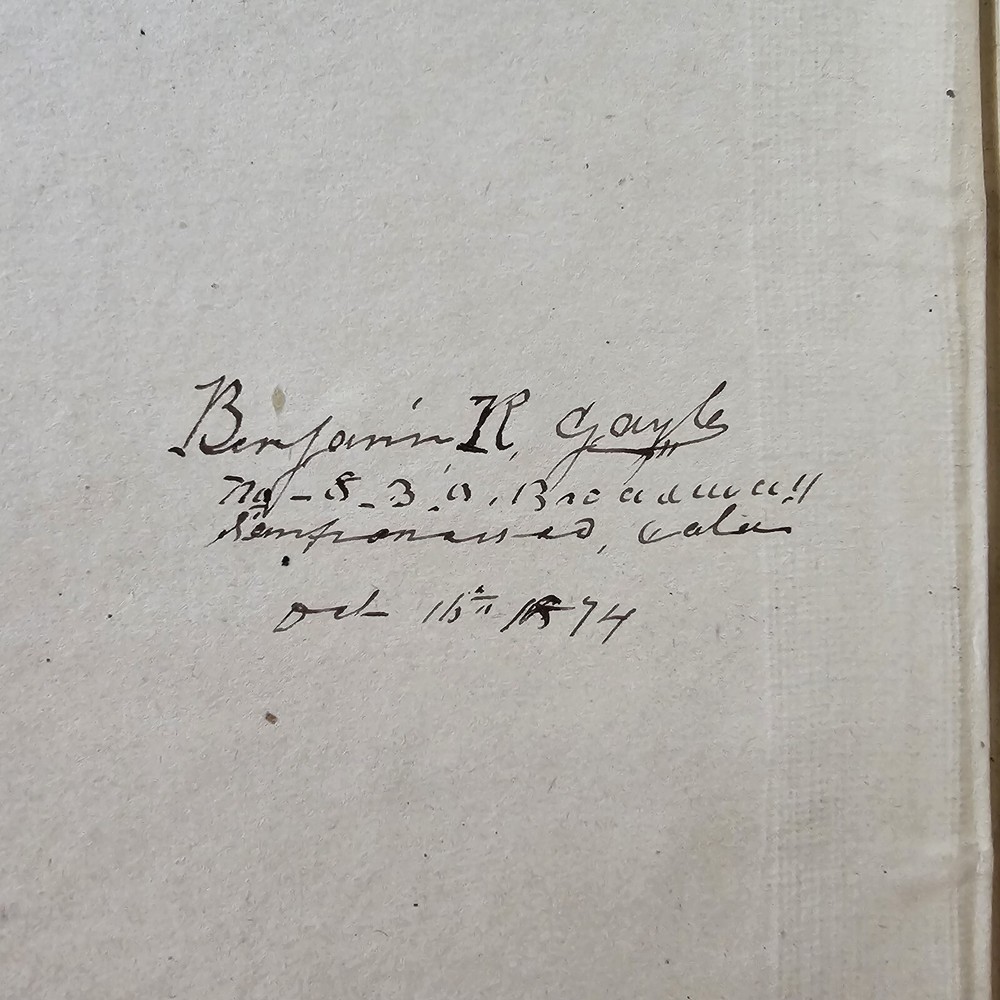 Benjamin R, Gayle
No - 8 - 3 0, Broadway
Sanfrancisco, Cala
Oct 16th 1874